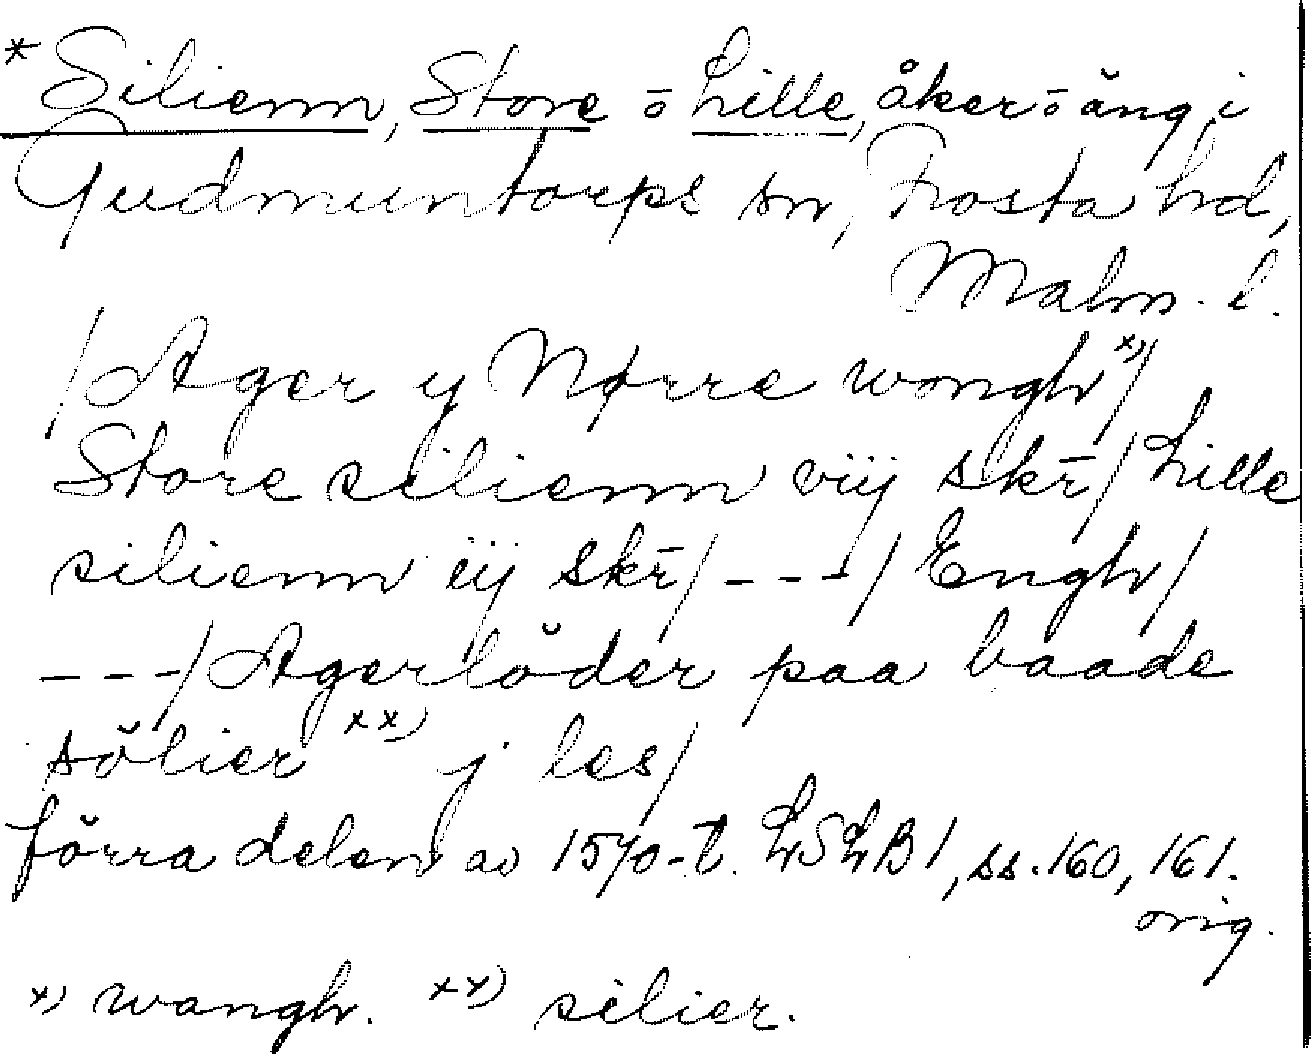 *Silienn, Store o Lille, åker o äng i
Gudmuntorps sn, Frosta hd,
Malm. l.
/Ager y Nørre wongh x)/
Store silienn viij skr̄/Lille
silienn iij skr̄/---/Engh/
---/Agerlöder paa baade
sölier xx) j les/
förra delen av 1570-t. LSLB1, ss. 160, 161.
orig.
x) wangh. xx) silier.